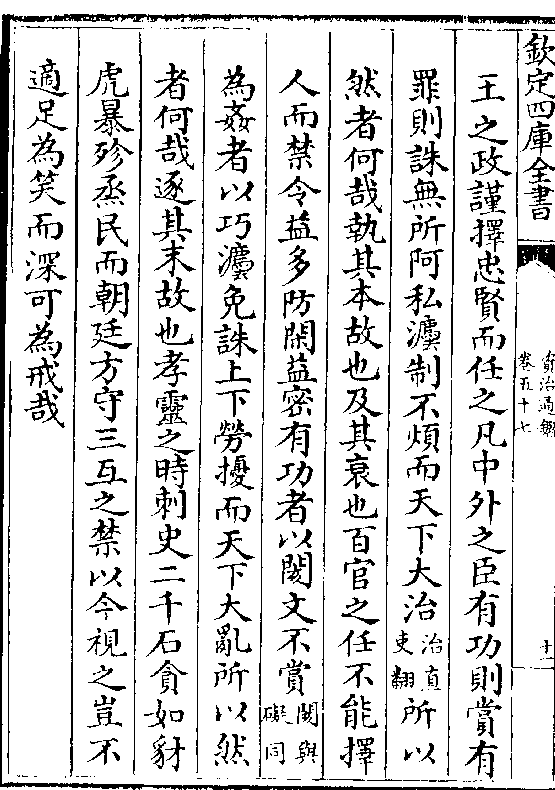 欽定四庫全書
資治通鑑
卷五十七
十一
王之政謹擇忠賢而任之凡中外之臣有功則賞有
罪則誅無所阿私灋制不煩而天下大治治直吏翻所以
然者何哉執其本故也及其衰也百官之任不能擇
人而禁令益多防閑益密有功者以閡文不賞閡與礙同
為姦者以巧灋免誅上下勞擾而天下大亂所以然
者何哉逐其末故也孝靈之時刺史二千石貪如豺
虎暴殄烝民而朝廷方守三互之禁以今視之豈不
適足為笑而深可為戒哉